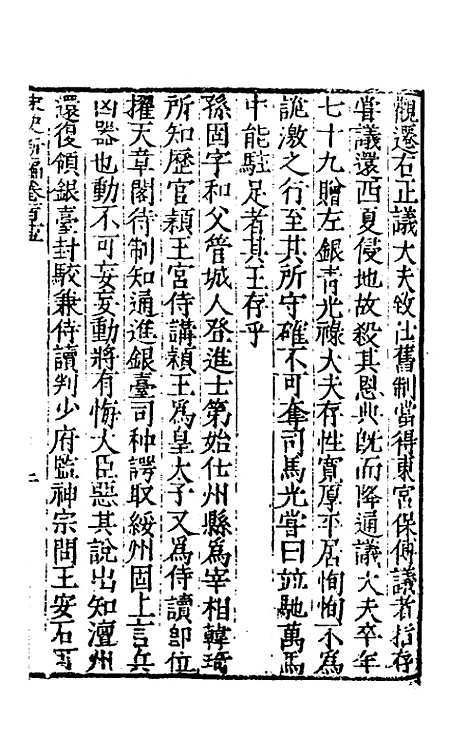 觀遷右正議大夫致仕舊制當得東宮保傅議者指存
嘗議還西夏侵地故殺其恩典旣而降通議大夫卒年
七十九贈左銀青光祿大夫存性寬厚平居恂恂不爲
詭激之行至其所守確不可奪司馬光嘗曰竝馳萬馬
中能駐足者其王存乎
孫固字和父管城人登進士第始仕州縣爲宰相韓琦
所知歷官潁王宮侍講潁王爲皇太子又爲侍讀卽位
擢天章閣待制知通進銀臺司种諤取綏州固上言兵
凶器也動不可妄妄動將有悔大臣惡其說出知澶州
還復領銀臺封駁兼侍讀判少府監神宗問王安石可
宋史新編卷百十五
二